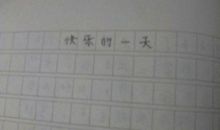 快乐的一天